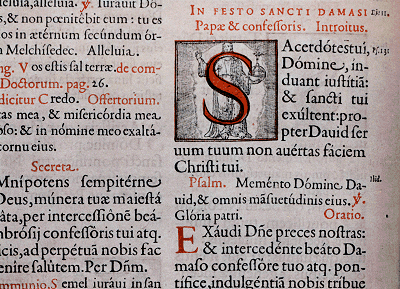 eluia, alleluia. ℣. Iurauit Do-
us, & non pœnitébit eum: tu es
os in ætérnum secundum ór-
m Melchisedec. Alleluia.
ng. Vos estis sal terræ. de com-
Doctorum. pag. 26.
dicitur Credo. Offertorium.
tas mea, & misericórdia mea
pso: & in nómine meo exaltá-
cornu eius.
Secreta.
Mnípotens sempitérne
Deus, múnera tuæ maiestá
láta, per intercessióne beá-
mbrósij confessóris tui atq.
icis, ad perpétuā nobis fac
enire salútem. Per Dñm.
mmunio. Semel iuráui in san
IN FESTO SANCTI DAMASI
Papæ & confessoris. Introitus.
SAcerdótes tui,
Dómine, in-
duant iustitiā:
& sancti tui
exúltent: pro-
pter Dauid ser
uum tuum non auértas faciem
Christi tui.
Psalm. Meménto Dómine Da-
uid, & omnis māsuetúdinis eius. ℣.
Glória patri. Oratio.
EXáudi Dñe preces nostras:
& intercedénte beáto Da-
maso confessóre tuo atq. pon-
tífice, indulgéntiā nobis tríbue